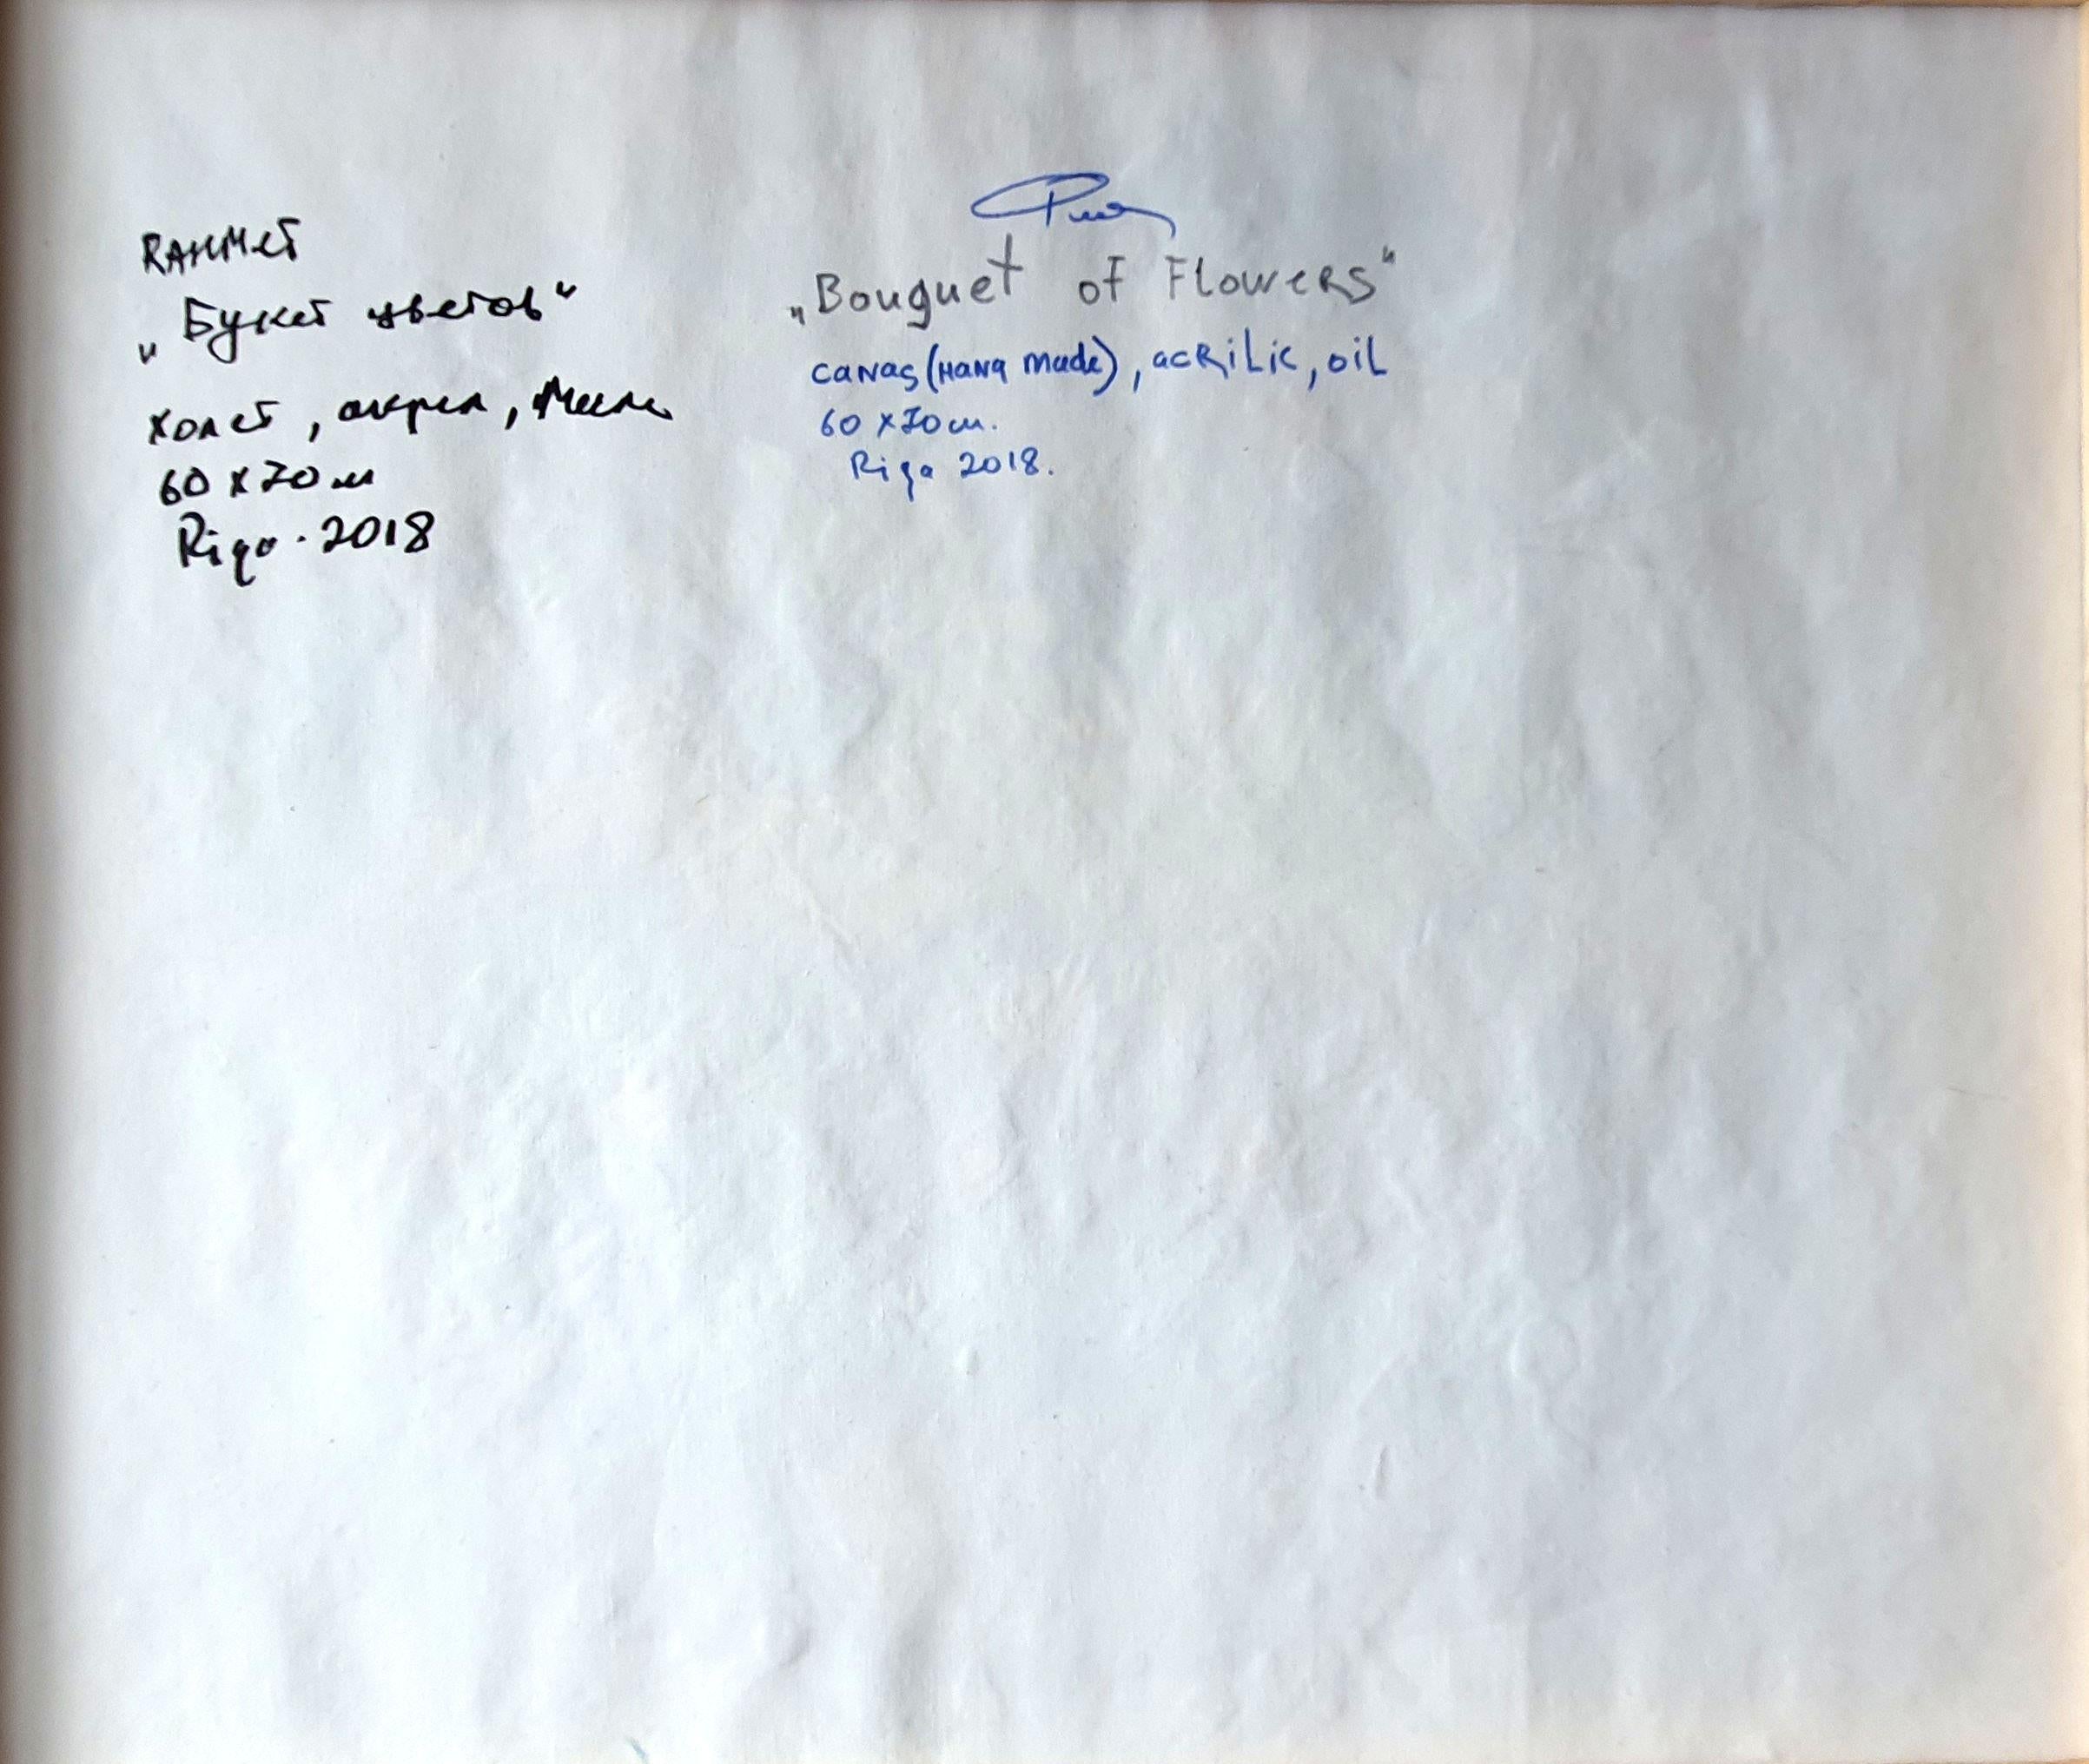 RAHMET
„Букет цветов“
холст, акрил, масло
60 x 70 см
Riga. 2018
„Bouguet of Flowers“
canas (Hand made), acRiLic, oil
60 x 70 cm.
Riga 2018.